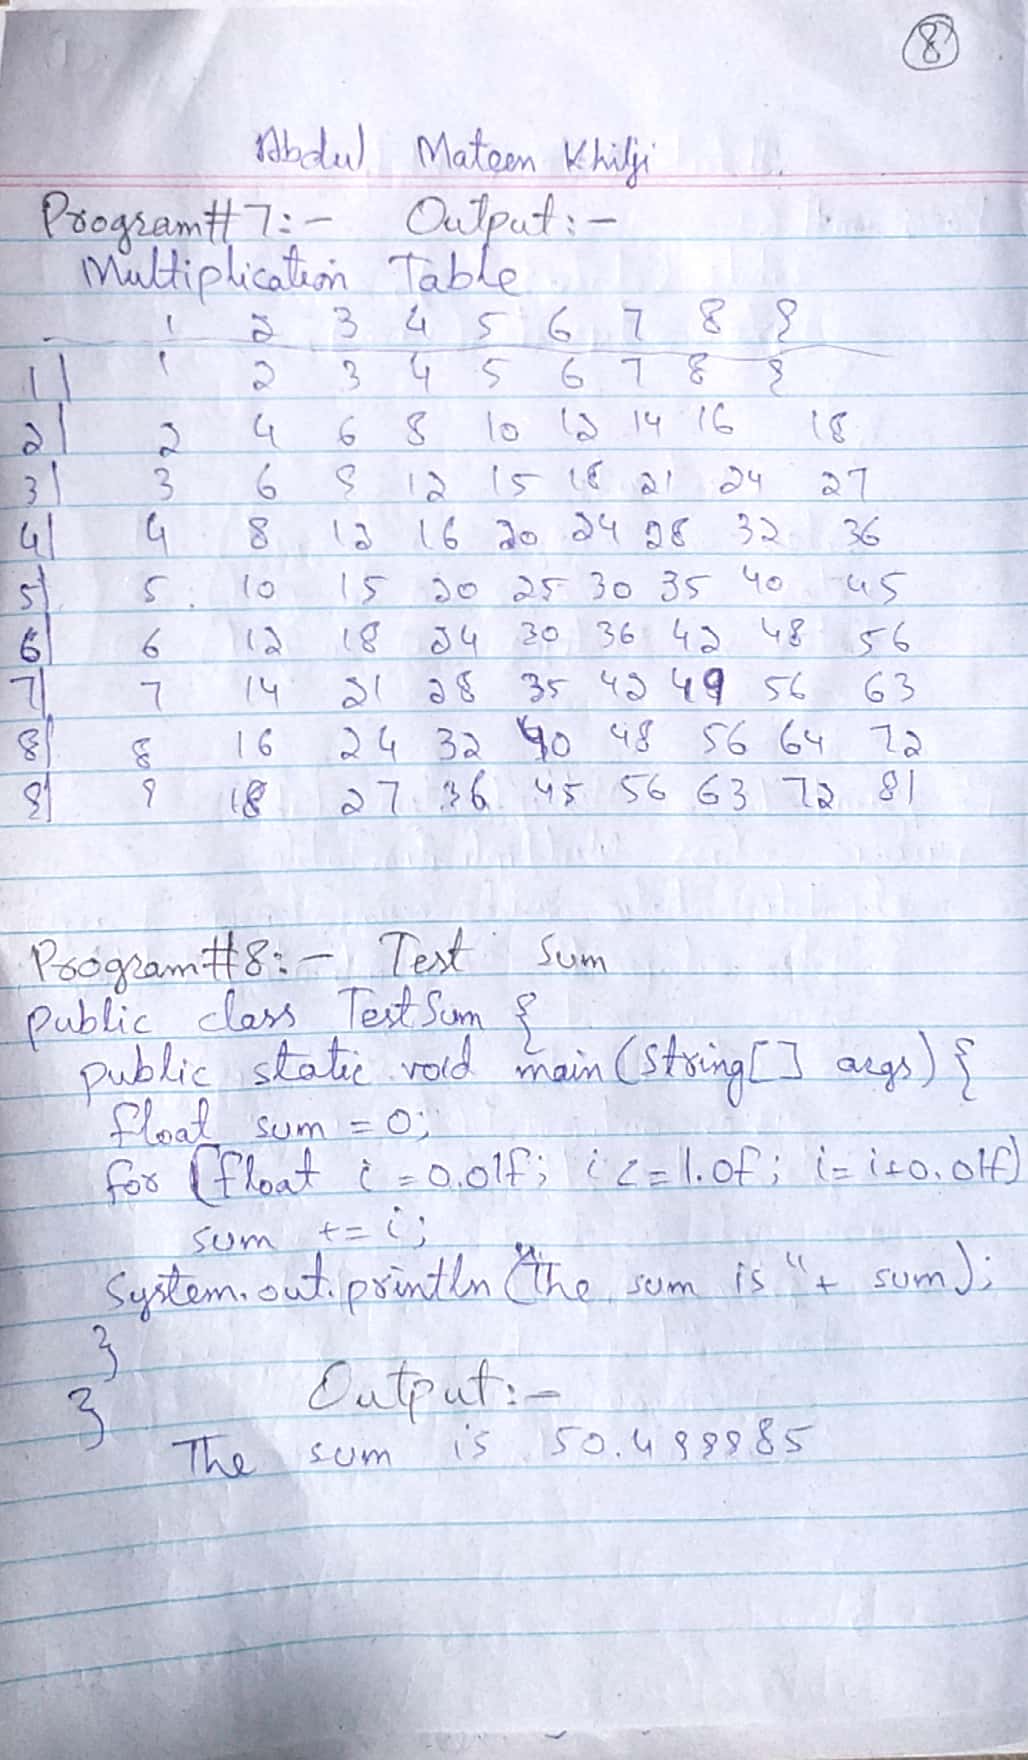 8
Abdul Mateen Khilji
Program#7:- Output:-
Multiplication Table
1 2 3 4 5 6 7 8 9
1| 1 2 3 4 5 6 7 8 9
2| 2 4 6 8 10 12 14 16 18
3| 3 6 9 12 15 18 21 24 27
4| 4 8 12 16 20 24 28 32 36
5| 5 10 15 20 25 30 35 40 45
6| 6 12 18 24 30 36 42 48 56
7| 7 14 21 28 35 42 49 56 63
8| 8 16 24 32 40 48 56 64 72
9| 9 18 27 36 45 56 63 72 81
Program#8:- Test Sum
public class TestSum {
public static void main(String[] args) {
float sum = 0;
for (float i = 0.01f; i <= 1.0f; i = i+0.01f)
sum += i;
System.out.println("The sum is "+ sum);
}
} Output:-
The sum is 50.499985